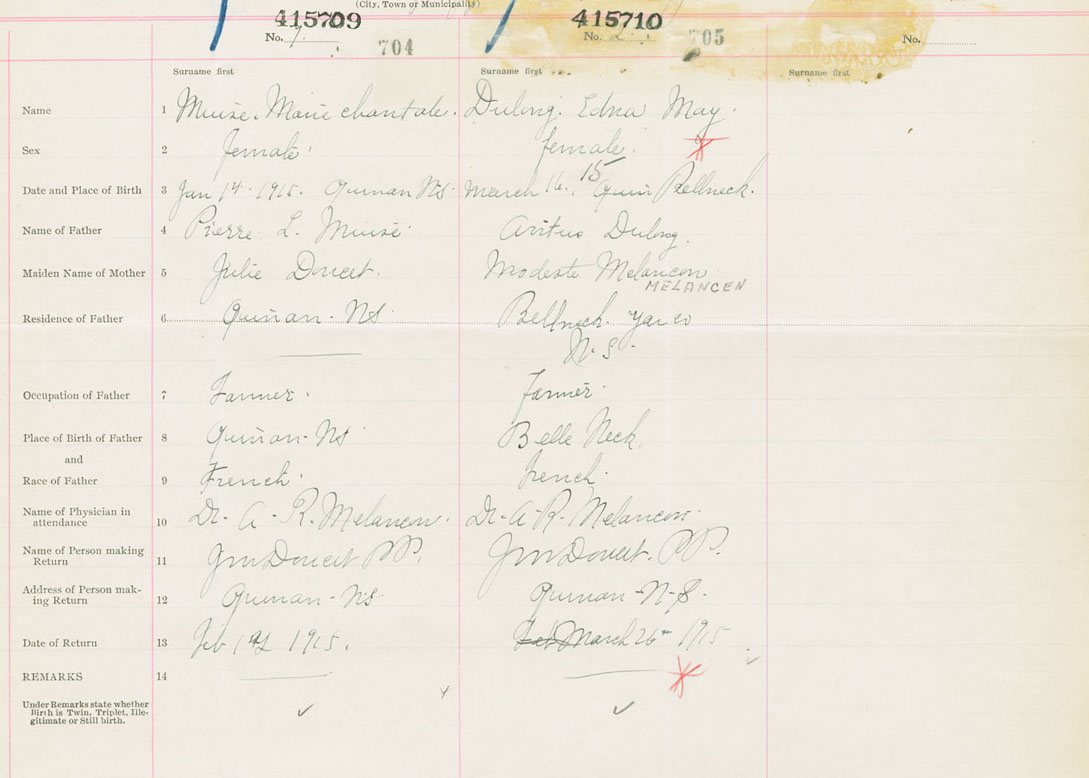 (City, Town or Municipality)
415709 415710
No. 7. 704 No. 705 No.
Surname first Surname first Surname first
Name 1 Muise, Marie chantale. Dulong. Edna May.
Sex 2 female. female.
Date and Place of Birth 3 Jan 14. 1915. Quinan NS. March 16, 15 Quin Bellneck.
Name of Father 4 Pierre L. Muise Dulong.
Maiden Name of Mother 5 Julie Doucet. Modeste Melancon
MELANCEN
Residence of Father 6 Quinan - NS Bellneck. Yar co
N. S.
Occupation of Father 7 Farmer. farmer.
Place of Birth of Father 8 Quinan - NS Belle Neck.
and
Race of Father 9 French. french.
Name of Physician in
attendance 10 Dr - A - R. Melancon. Dr - A - R. Melancon.
Name of Person making
Return 11 Doucet PP. Doucet. PP.
Address of Person mak-
ing Return 12 Quinan - NS. Quinan - N - S.
Date of Return 13 Feb 1st 1915. Feb March 26 - 1915
REMARKS 14
Under Remarks state whether
Birth is Twin, Triplet, Ille-
gitimate or Still birth.